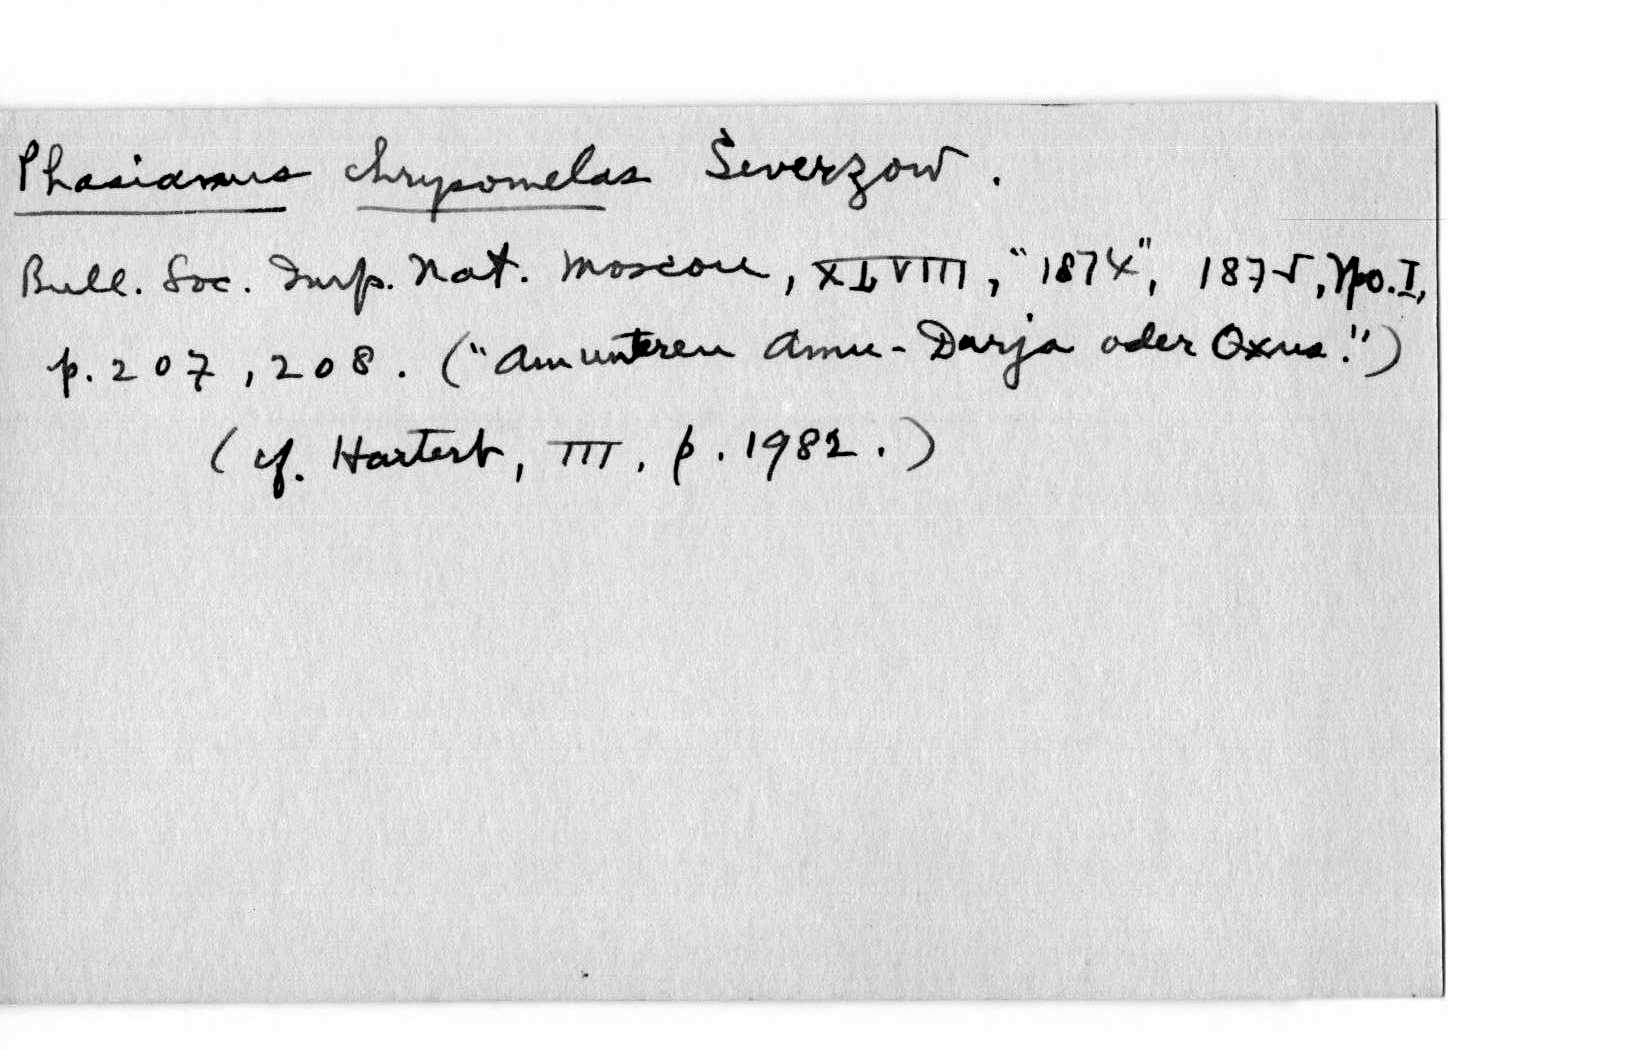 Phasianus chrysomelas Severzow.
Bull. Soc. Imp. Nat. Moscou, XLVIII, "1874", 1875, No. I,
p. 207, 208. ("Am unteren Amu-Darja oder Oxus.")
(cf. Hartert, III, p. 1982.)